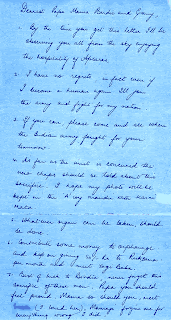 Dearest Papa Mama Birdie and Granny
1. By the time you get this letter I'll be
observing you all from the sky enjoying
the hospitality of Apsaras.
2. I have no regrets in fact even if
I become a human again I'll join
the army and fight for my nation.
3. If you can please come and see where
the Indian army fought for your
tomorrow.
4. As far as the unit is concerned the
new chaps should be told about this
sacrifice. I hope my photo will be
kept in the A coy mandir with Karni
Mata
5. Whatever organ can be taken, should
be done.
6. Contribute some money to orphanage
and keep on giving 50/- to Rukhsana
per month and meet Yogi Baba.
7. Best of luck to Birdie never forget this
sacrifice of these men. Papa you should
feel proud Mama so should you, meet
(I loved her). Mamaji forgive me for
everything wrong I did.